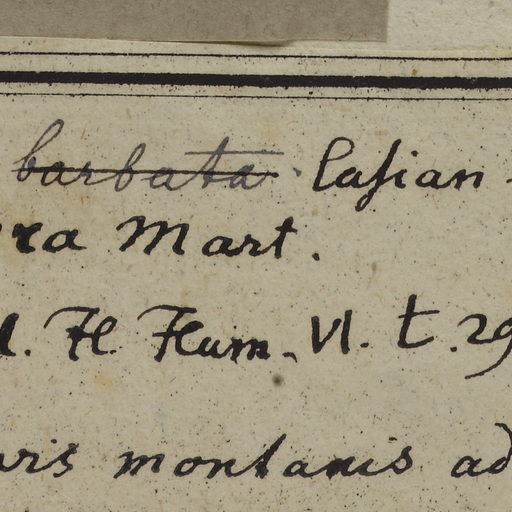 ~~barbata~~ . lasian-
ra Mart.
H. Hum. VI. t. 29
ris montanis ad